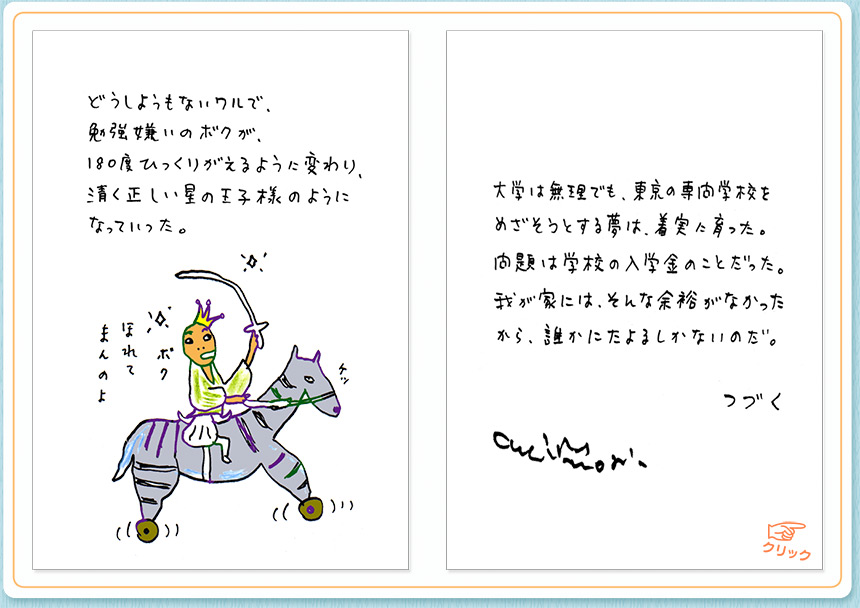 どうしようもないワルで、
勉強嫌いのボクが、
180度ひっくりがえるように変わり、
清く正しい星の王子様のように
なっていった。
ボク
ほれて
まんのよ
ケッ
大学は無理でも、東京の専門学校を
めざそうとする夢は、着実に育った。
問題は学校の入学金のことだった。
我が家には、そんな余裕がなかった
から、誰かにたよるしかないのだ。
つづく
クリック